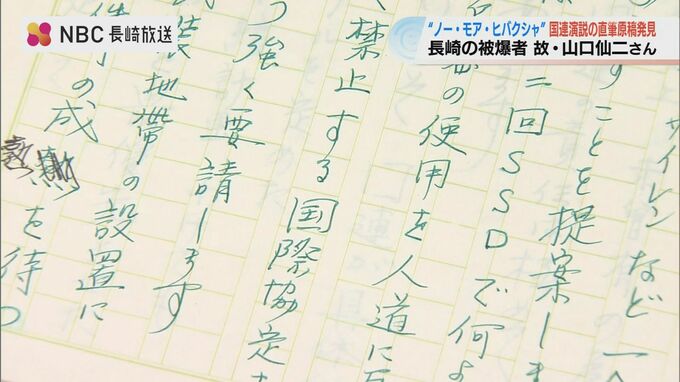 NBC 長崎放送
“ノー・モア・ヒバクシャ” 国連演説の直筆原稿発見
長崎の被爆者 故・山口仙二さん
サイレンなど一
すことを提案しま
二回SSDで何よ
の使用を人道に
禁止する国際協定
つ強く要請します
地帯の設置に
の成熟を待つ